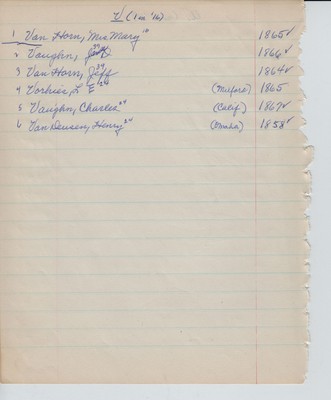 V (Dec '16)
1 Van Horn, Mrs Mary 1865✓
2 Vaughn, 1866✓
3 Van Horn, Jeff 1864✓
4 Vorhies, L E (Milford) 1865
5 Vaughn, Charles 24 (Calif) 1867✓
6 Van Deusen, Henry 24 (Omaha) 1858✓